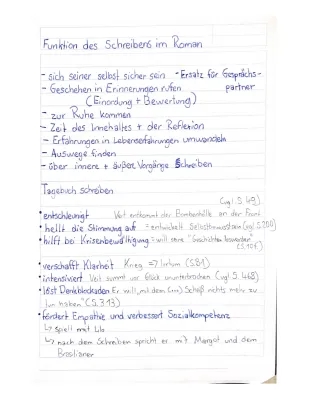 Funktion des Schreibens im Roman
- sich seiner selbst sicher sein - Ersatz für Gesprächs-
- Geschehen in Erinnerungen rufen partner
(Einordung + Bewertung)
- zur Ruhe kommen
- Zeit des Innehaltes + der Reflexion
- Erfahrungen in Lebenserfahrungen umwandeln
- Auswege finden
- über innere + äußere Vorgänge Schreiben
Tagebuch schreiben
(vgl. S. 49)
• entschleunigt Veit entkommt der Bombenhölle an der Front
• hellt die Stimmung auf = entwickelt Selbstbewusstsein (vgl. S.
• hilft bei Krisenbewältigung = will seine "Geschichten loswerden"
• verschafft Klarheit Krieg => Irrtum (S.
• intensiviert Veit summt vor Glück ununterbrochen (vgl. S. 468)
• löst Denkblockaden Er will „mit dem Schoß nichts mehr zu
tun haben" (S. 313)
• fördert Empathie und verbessert Sozialkompetenz
↳ spielt mit Lilo
↳ nach dem Schreiben spricht er mit Margot und dem
Brasilianer